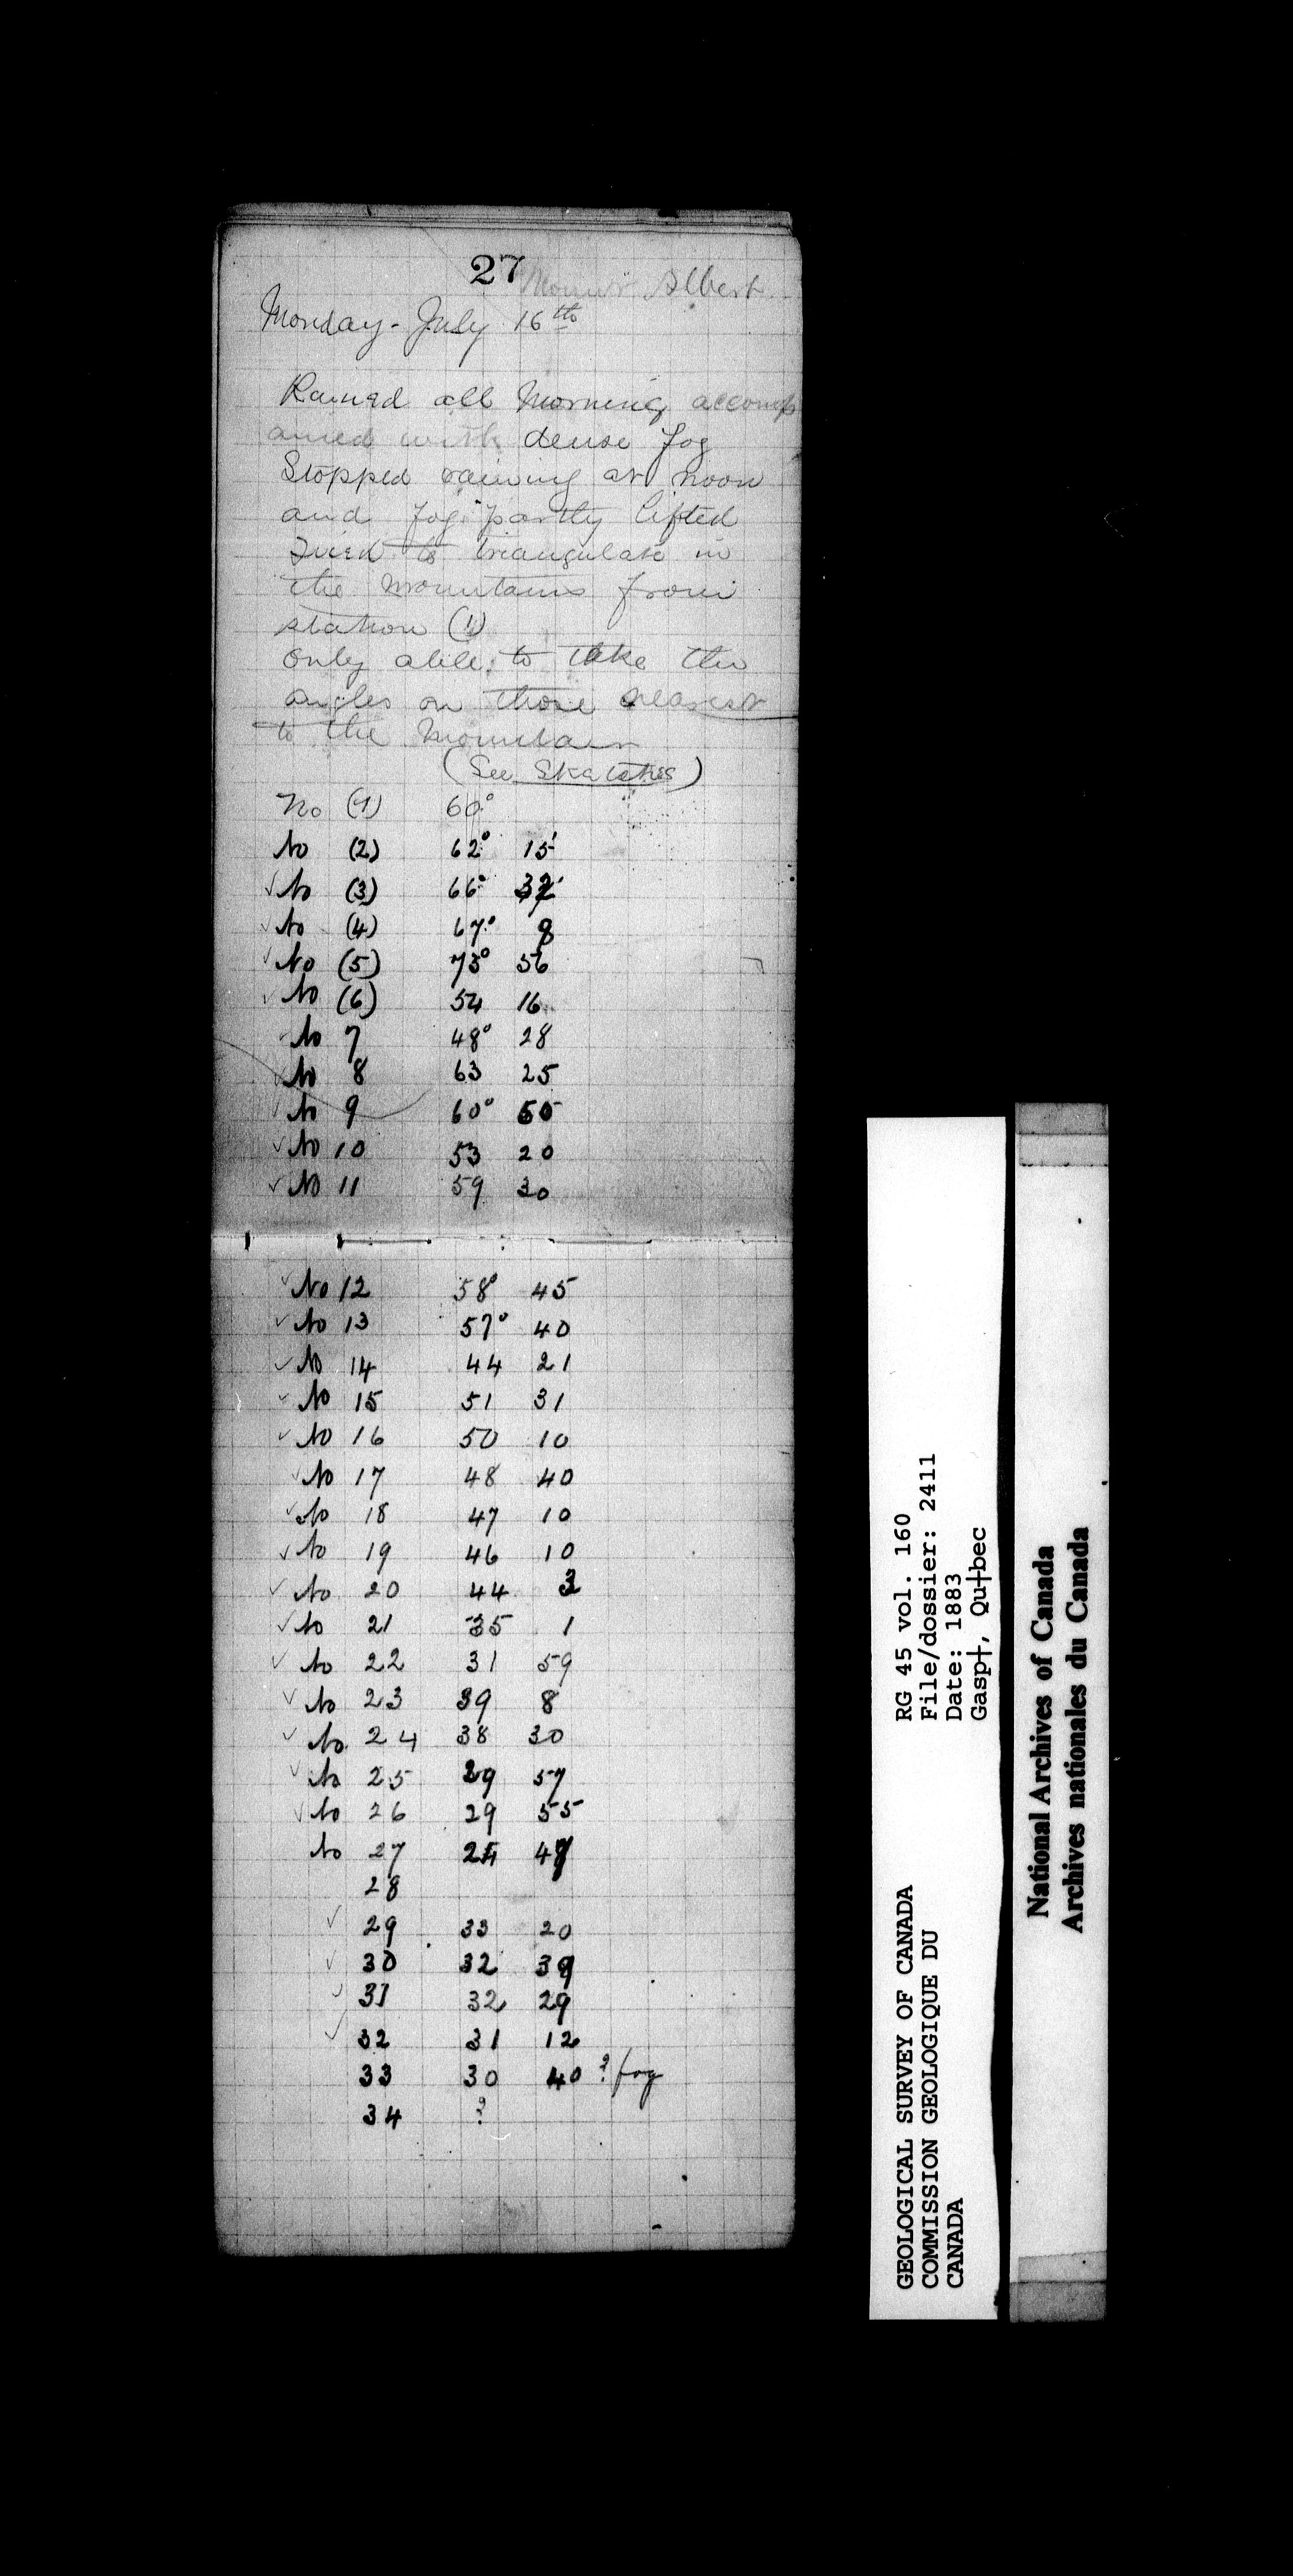 27
Mount Albert
Monday - July 16th
Rained all Morning accomp
anied with dense fog
Stopped raining at noon
and fog partly lifted
Tried to triangulate in
the mountains from
station (1)
only able to take the
angles on those nearest
to the Mountain
(See Sketches)
No (1) 60°
No (2) 62° 15'
✓ No (3) 66° 32'
✓ No (4) 67° 8
✓ No (5) 73° 56
✓ No (6) 54 16
✓ No 7 48° 28
✓ No 8 63 25
✓ No 9 60° 50
✓ No 10 53 20
✓ No 11 59 30
✓ No 12 58° 45
✓ No 13 57° 40
✓ No 14 44 21
✓ No 15 51 31
✓ No 16 50 10
✓ No 17 48 40
✓ No 18 47 10
✓ No 19 46 10
✓ No 20 44 3
✓ No 21 35 1
✓ No 22 31 59
✓ No 23 39 8
✓ No. 24 38 30
✓ No 25 29 57
✓ No 26 29 55
No 27 24 47
28
✓ 29 33 20
✓ 30 32 39
✓ 31 32 29
✓ 32 31 12
33 30 40 ? fog
34 ?
GEOLOGICAL SURVEY OF CANADA RG 45 vol. 160
COMMISSION GEOLOGIQUE DU File/dossier: 2411
CANADA Date: 1883
Gasp†, Qu†bec
National Archives of Canada
Archives nationales du Canada